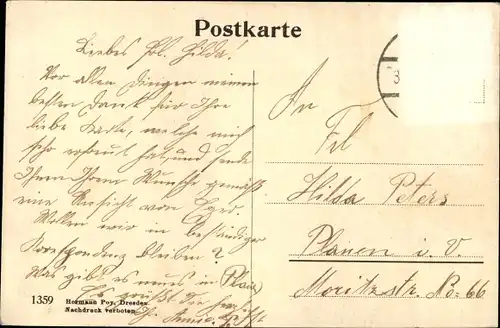 Postkarte
Liebes Frl. Hilda!
Vor allen Dingen meinen
besten Dank für Ihre
liebe Karte, welche mich
sehr erfreut hat, und sende
Ihnen Ihrem Wunsche gemäß
eine Ansicht von Eger.
Wollen wir in beständiger
Korrespondenz bleiben?
Was gibt es neues in Plauen
Es grüßt Sie
1359
Hermann Poy, Dresden
Nachdruck verboten
An
Frl
Hilda Peters
Plauen i. V.
Moritzstr. No. 66